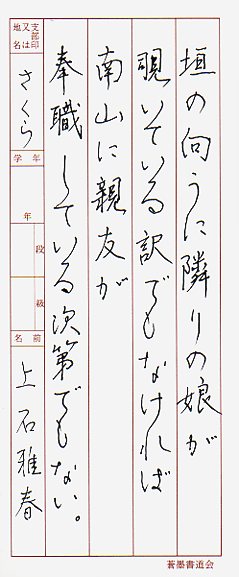 垣の向うに隣りの娘が
覗いている訳でもなければ
南山に親友が
奉職している次第でもない。
支部印又は地名
さくら
学年
年
段
級
名前
上石雅春
蒼墨書道会